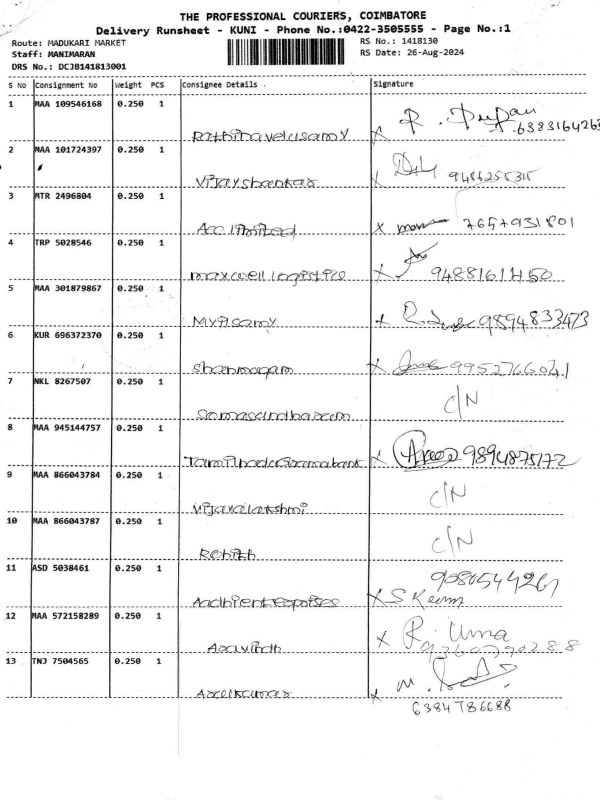 THE PROFESSIONAL COURIERS, COIMBATORE
Delivery Runsheet - KUNI - Phone No.:0422-3505555 - Page No.:1
Route: MADUKARI MARKET RS No.: 1418130
Staff: MANIMARAN RS Date: 26-Aug-2024
DRS No.: DCJB141813001
S No Consignment No Weight PCS Consignee Details . Signature
1 MAA 109546168 0.250 1
Rathinavelusamy X R. 6383164263
2 MAA 101724397 0.250 1
Vijayshankar X 9486255315
3 MTR 2496804 0.250 1
Acc limited X 7657931801
4 TRP 5028546 0.250 1
maxwell logistics X 9488161450
5 MAA 301879867 0.250 1
Mylsamy X 9894833473
6 KUR 696372370 0.250 1
Shanmugam X 9952766041
7 NKL 8267507 0.250 1 C/N
Somasundharam
8 MAA 945144757 0.250 1
Tamilnadu Gramabank X 9894875172
9 MAA 866043784 0.250 1 C/N
Vijayalakshmi
10 MAA 866043787 0.250 1 C/N
Rohith
11 ASD 5038461 0.250 1
Aadhienterprises X S
12 MAA 572158289 0.250 1 X R. Uma
Aravindh
13 TNJ 7504565 0.250 1
Arulkumar X M.
6384786688